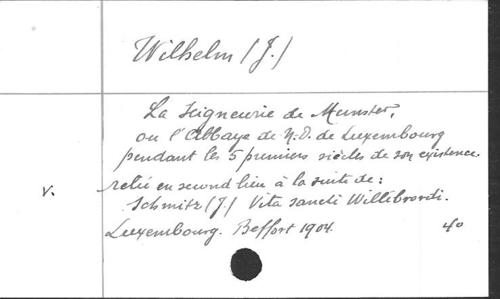 Wilhelm (J.)
La Seigneurie de Munster,
ou l'Abbaye de N.D. de Luxembourg
pendant les 5 premiers siècles de son existence.
v. relié en second lieu à la suite de:
Schmitz (J.) Vita sancti Willibrordi.
Luxembourg. Beffort 1904. 4o